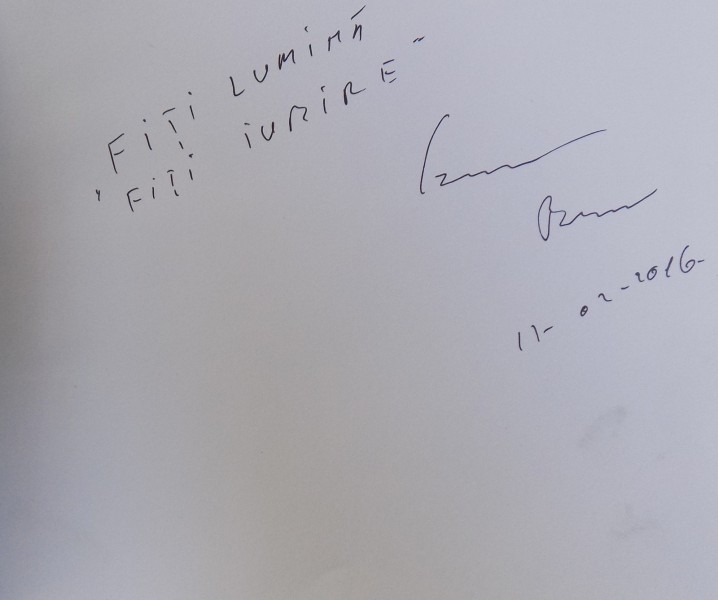 FIȚI LUMINĂ
" FIȚI IUBIRE "
11-02-2016-